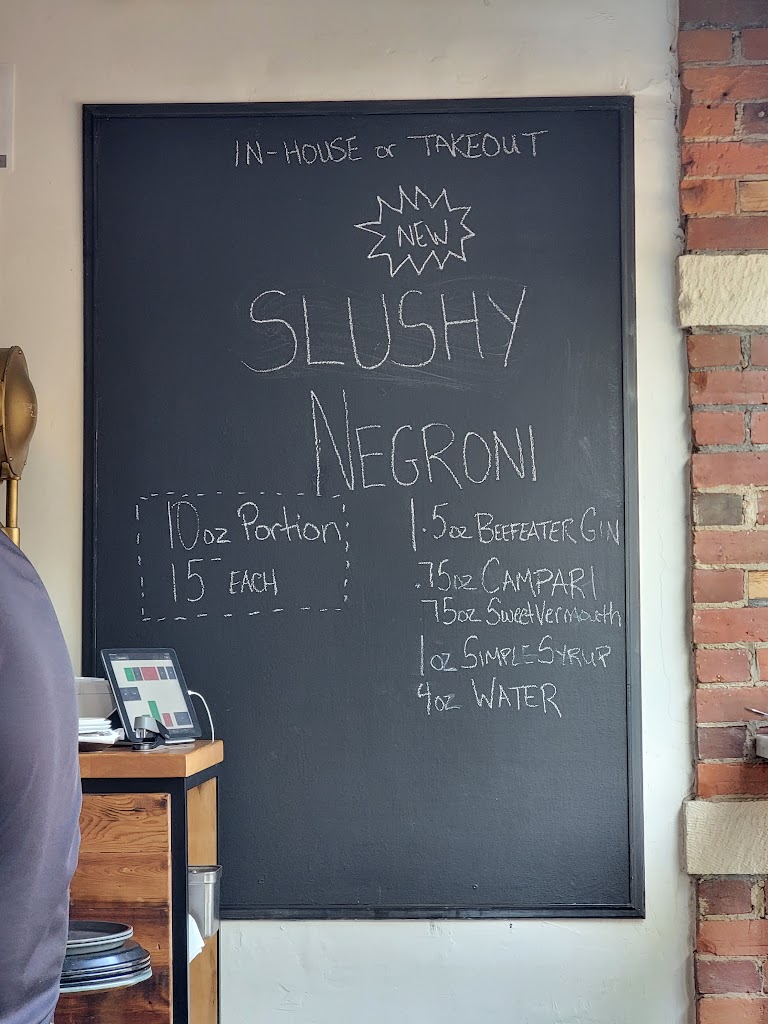 IN-HOUSE or TAKEOUT
NEW
SLUSHY
NEGRONI
10oz Portion
15- EACH
1.5oz BEEFEATER GIN
.75oz CAMPARI
.75oz Sweet Vermouth
1oz SIMPLE SYRUP
4oz WATER